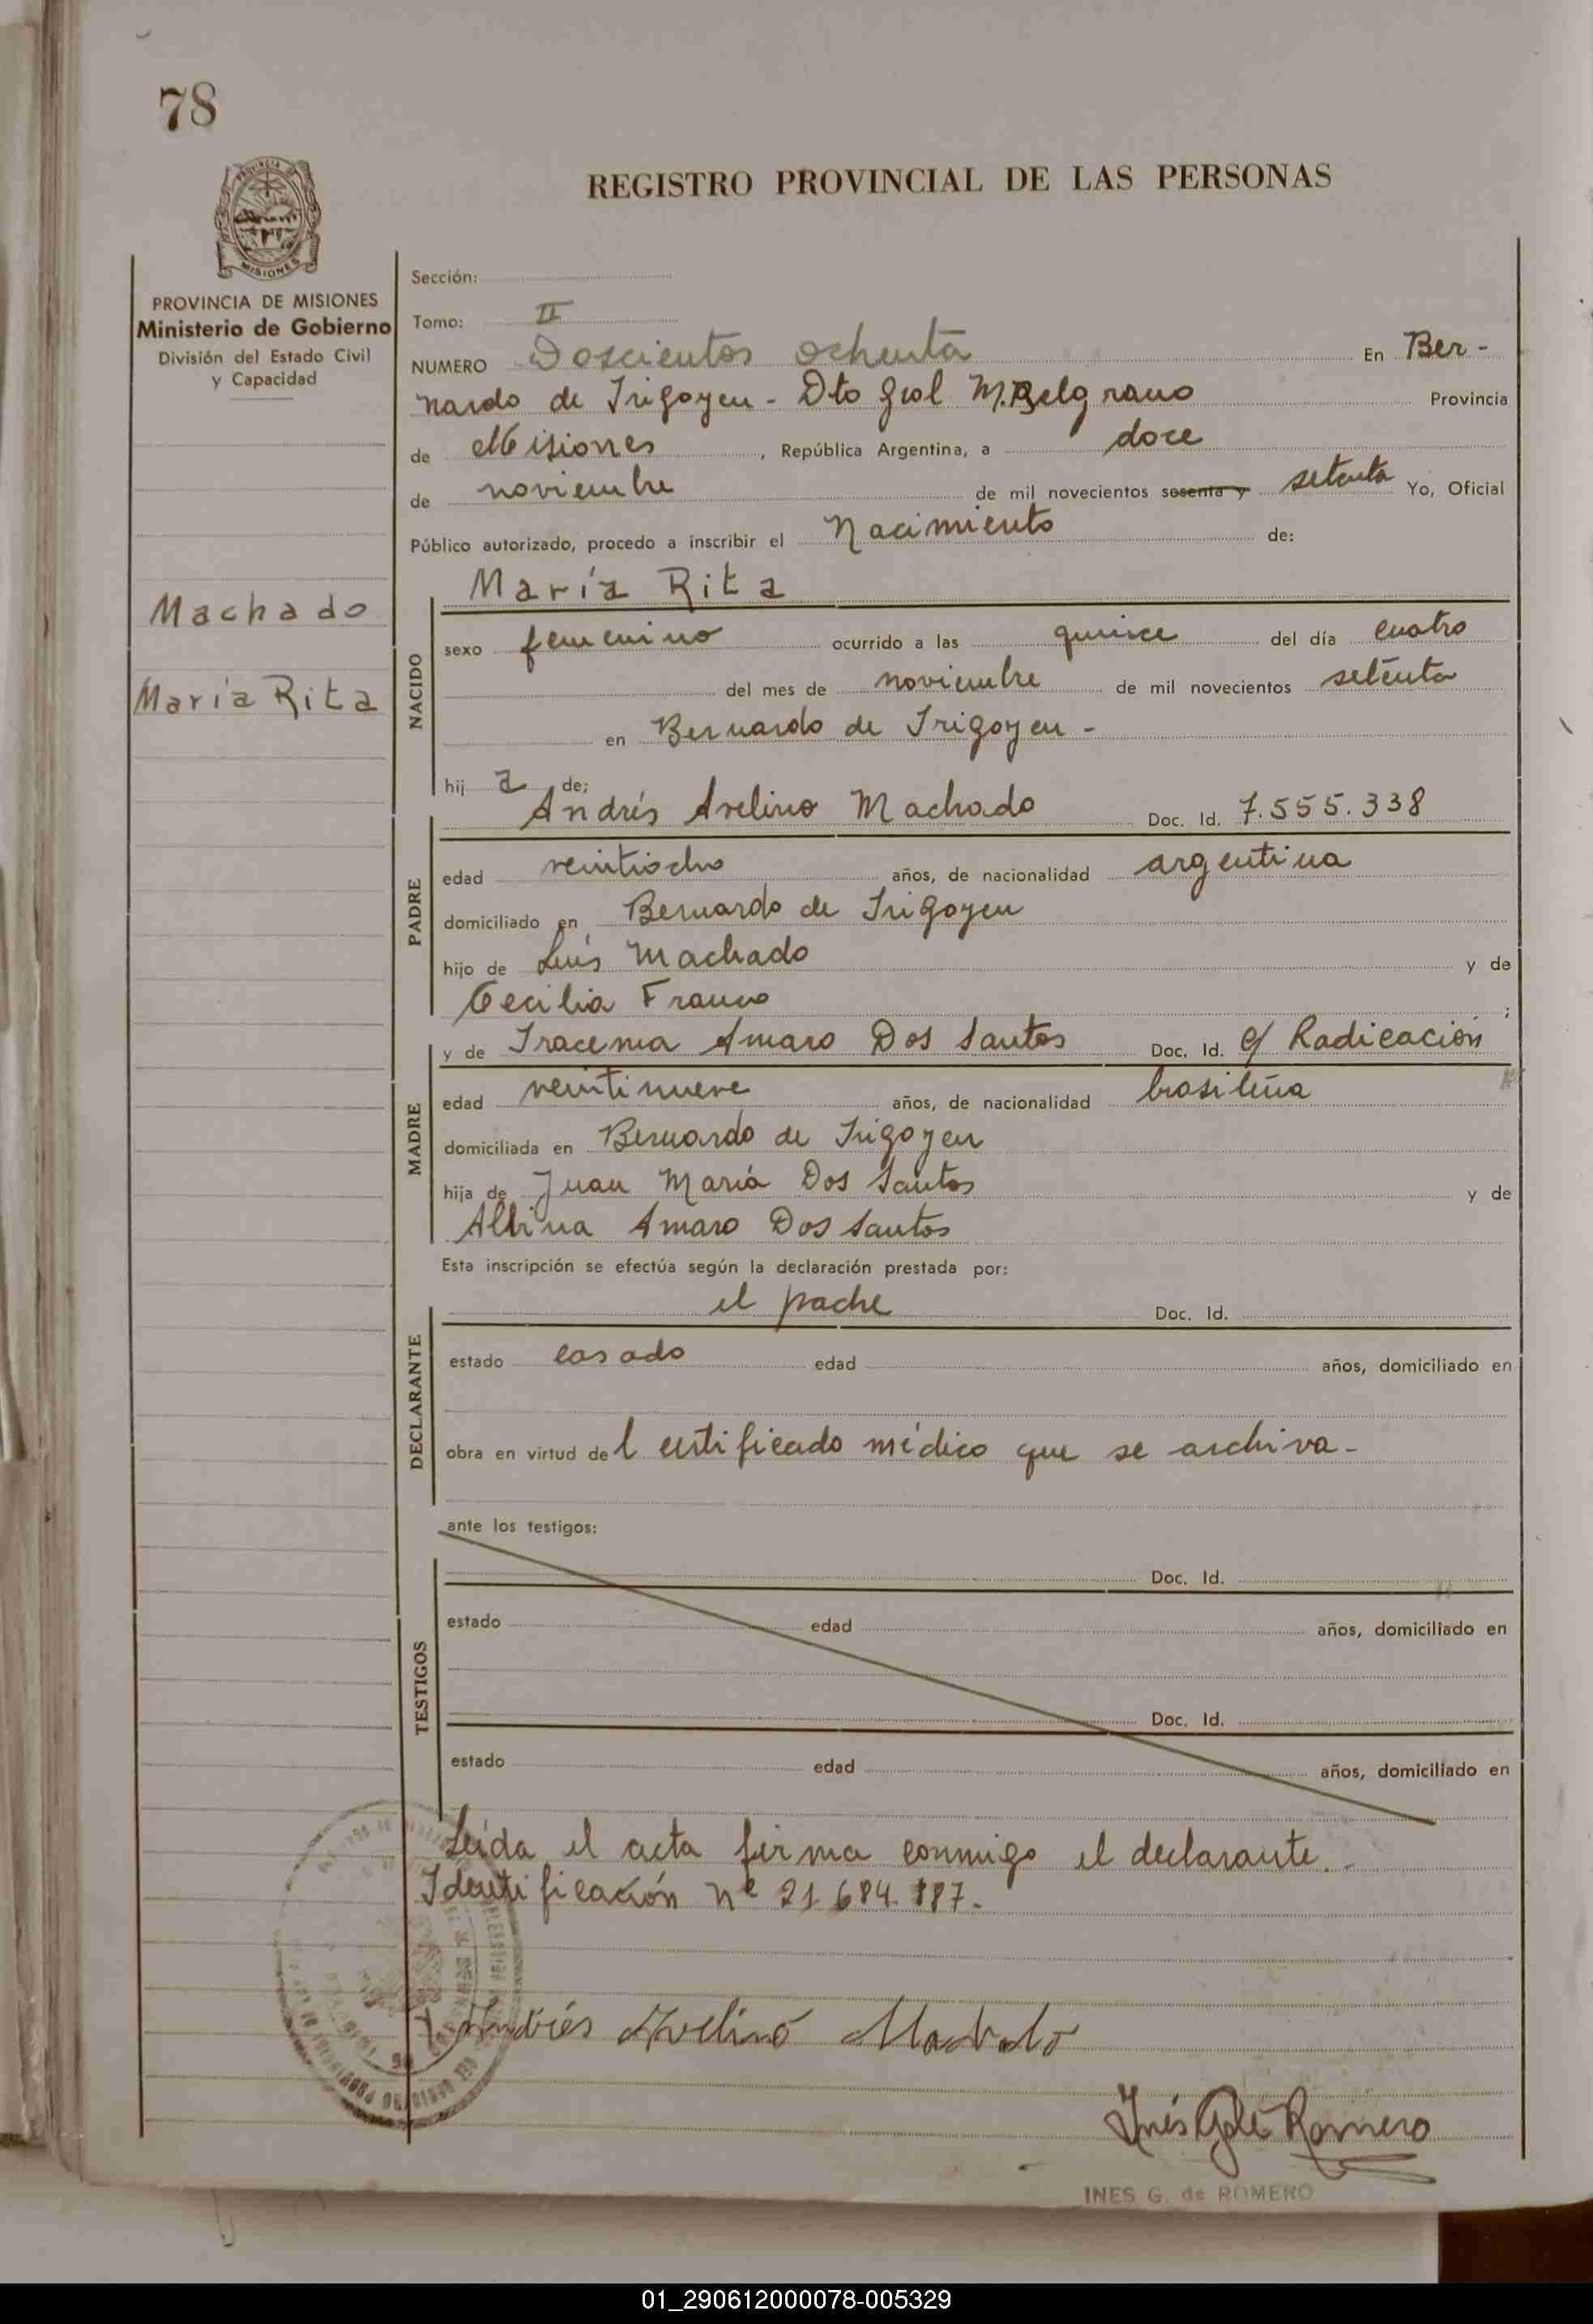 78
REGISTRO PROVINCIAL DE LAS PERSONAS
PROVINCIA DE MISIONES
Ministerio de Gobierno
División del Estado Civil
y Capacidad
Machado
María Rita
Sección:
Tomo: II
NUMERO Doscientos ochenta En Ber-
nardo de Irigoyen - Dto Gral M. Belgrano Provincia
de Misiones, República Argentina, a doce
de noviembre de mil novecientos sesenta y setenta Yo, Oficial
Público autorizado, procedo a inscribir el Nacimiento de:
María Rita
NACIDO
sexo femenino ocurrido a las quince del día cuatro
del mes de noviembre de mil novecientos setenta
en Bernardo de Irigoyen -
hij a de;
Andrés Avelino Machado Doc. Id. 7.555.338
PADRE
edad veintiocho años, de nacionalidad argentina
domiciliado en Bernardo de Irigoyen
hijo de Luis Machado y de
Cecilia Franco ;
y de Iracema Amaro Dos Santos Doc. Id. c/ Radicación
MADRE
edad veintinueve años, de nacionalidad brasileña
domiciliada en Bernardo de Irigoyen
hija de Juan María Dos Santos y de
Albina Amaro Dos Santos
Esta inscripción se efectúa según la declaración prestada por:
el padre Doc. Id.
DECLARANTE
estado casado edad años, domiciliado en
obra en virtud del certificado médico que se archiva -
ante los testigos:
Doc. Id.
TESTIGOS
estado edad años, domiciliado en
Doc. Id.
estado edad años, domiciliado en
Leída el acta firma conmigo el declarante. -
Identificación Nº 21.684.187.-
Andrés Avelino Machado
Inés Romero
INES G. de ROMERO
01_290612000078-005329